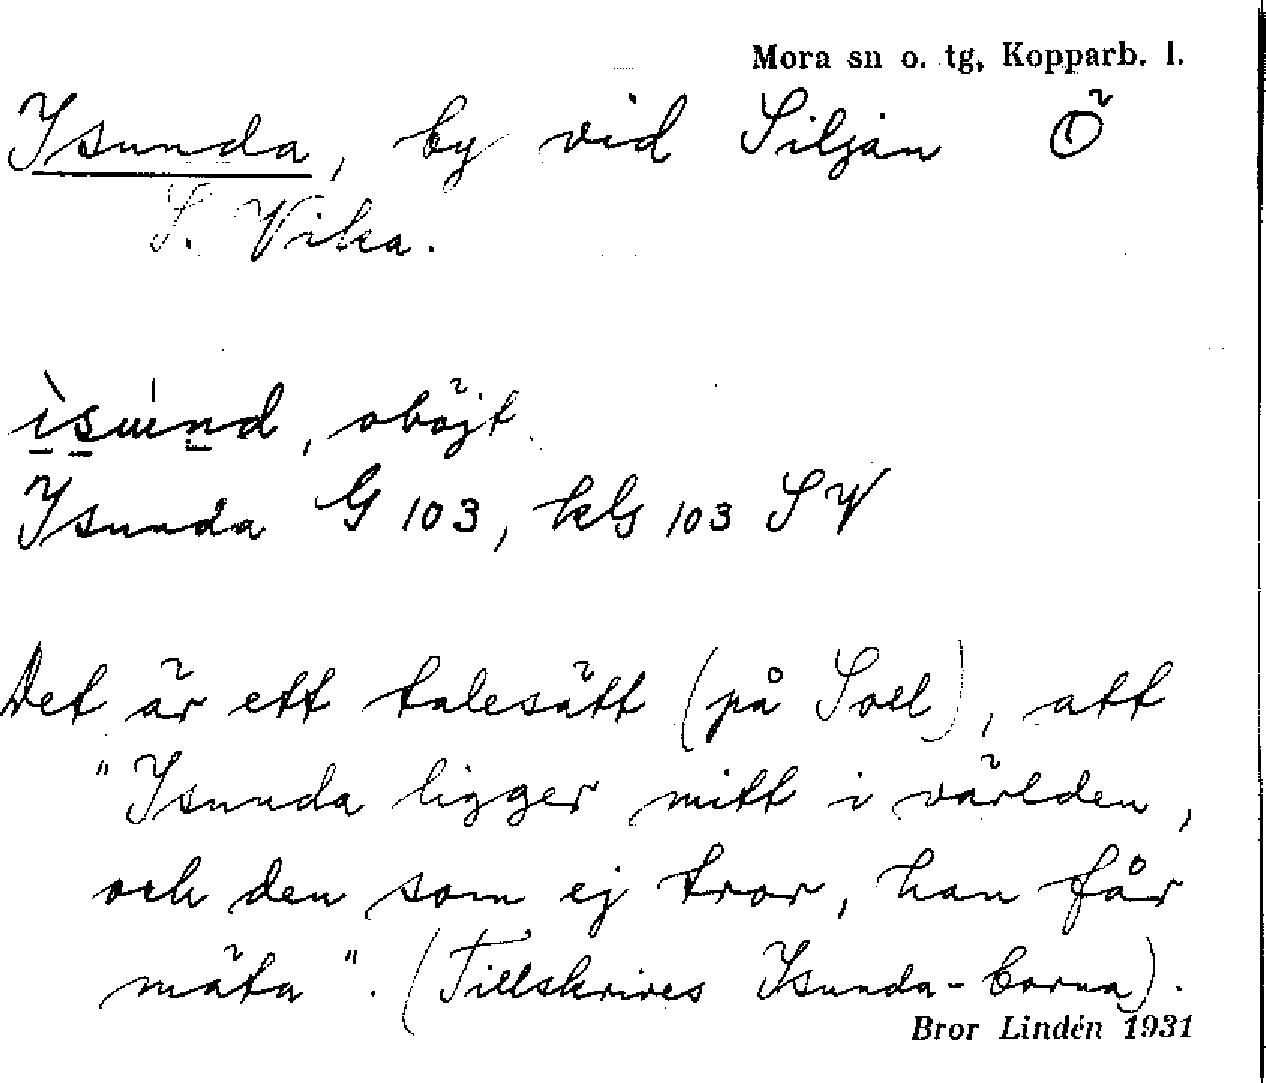 Mora sn o. tg, Kopparb. l.
Isunda, by vid Siljan Ö
S. Vika.
ìsu̍nd, oböjt.
Isunda G 103, kG 103 SV
Det är ett talesätt (på Soll), att
"Isunda ligger mitt i världen,
och den som ej tror, han får
mäta". (Tillskrives Isunda-borna).
Bror Lindén 1931